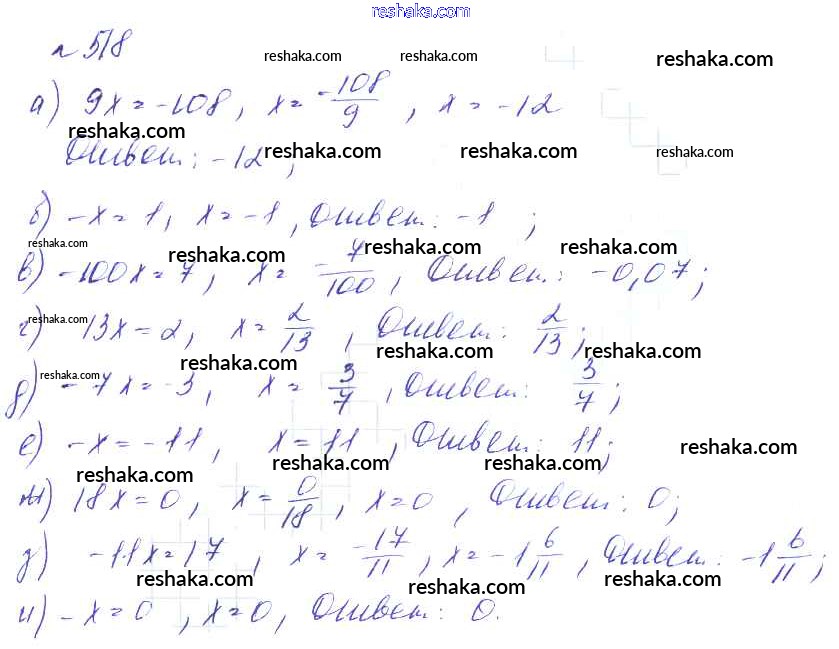 reshaka.com
№ 518
reshaka.com reshaka.com reshaka.com
а) 9x = -108, x = -108/9, x = -12
reshaka.com
Ответ: -12;
reshaka.com reshaka.com reshaka.com
б) -x = 1, x = -1, Ответ: -1;
reshaka.com reshaka.com reshaka.com reshaka.com
в) -100x = 7, x = -7/100, Ответ: -0,07;
reshaka.com
г) 13x = 2, x = 2/13, Ответ: 2/13;
reshaka.com reshaka.com reshaka.com reshaka.com
д) -7x = -3, x = 3/7, Ответ: 3/7;
е) -x = -11, x = 11, Ответ: 11;
reshaka.com reshaka.com reshaka.com reshaka.com
ж) 18x = 0, x = 0/18, x = 0, Ответ: 0;
з) -11x = 17, x = -17/11, x = -1 6/11, Ответ: -1 6/11;
reshaka.com reshaka.com reshaka.com
и) -x = 0, x = 0, Ответ: 0.